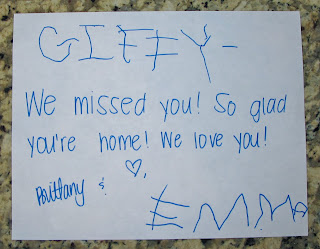 GIFFY-
We missed you! So glad
you're home! We love you!
♡,
Brittany &
EMMA